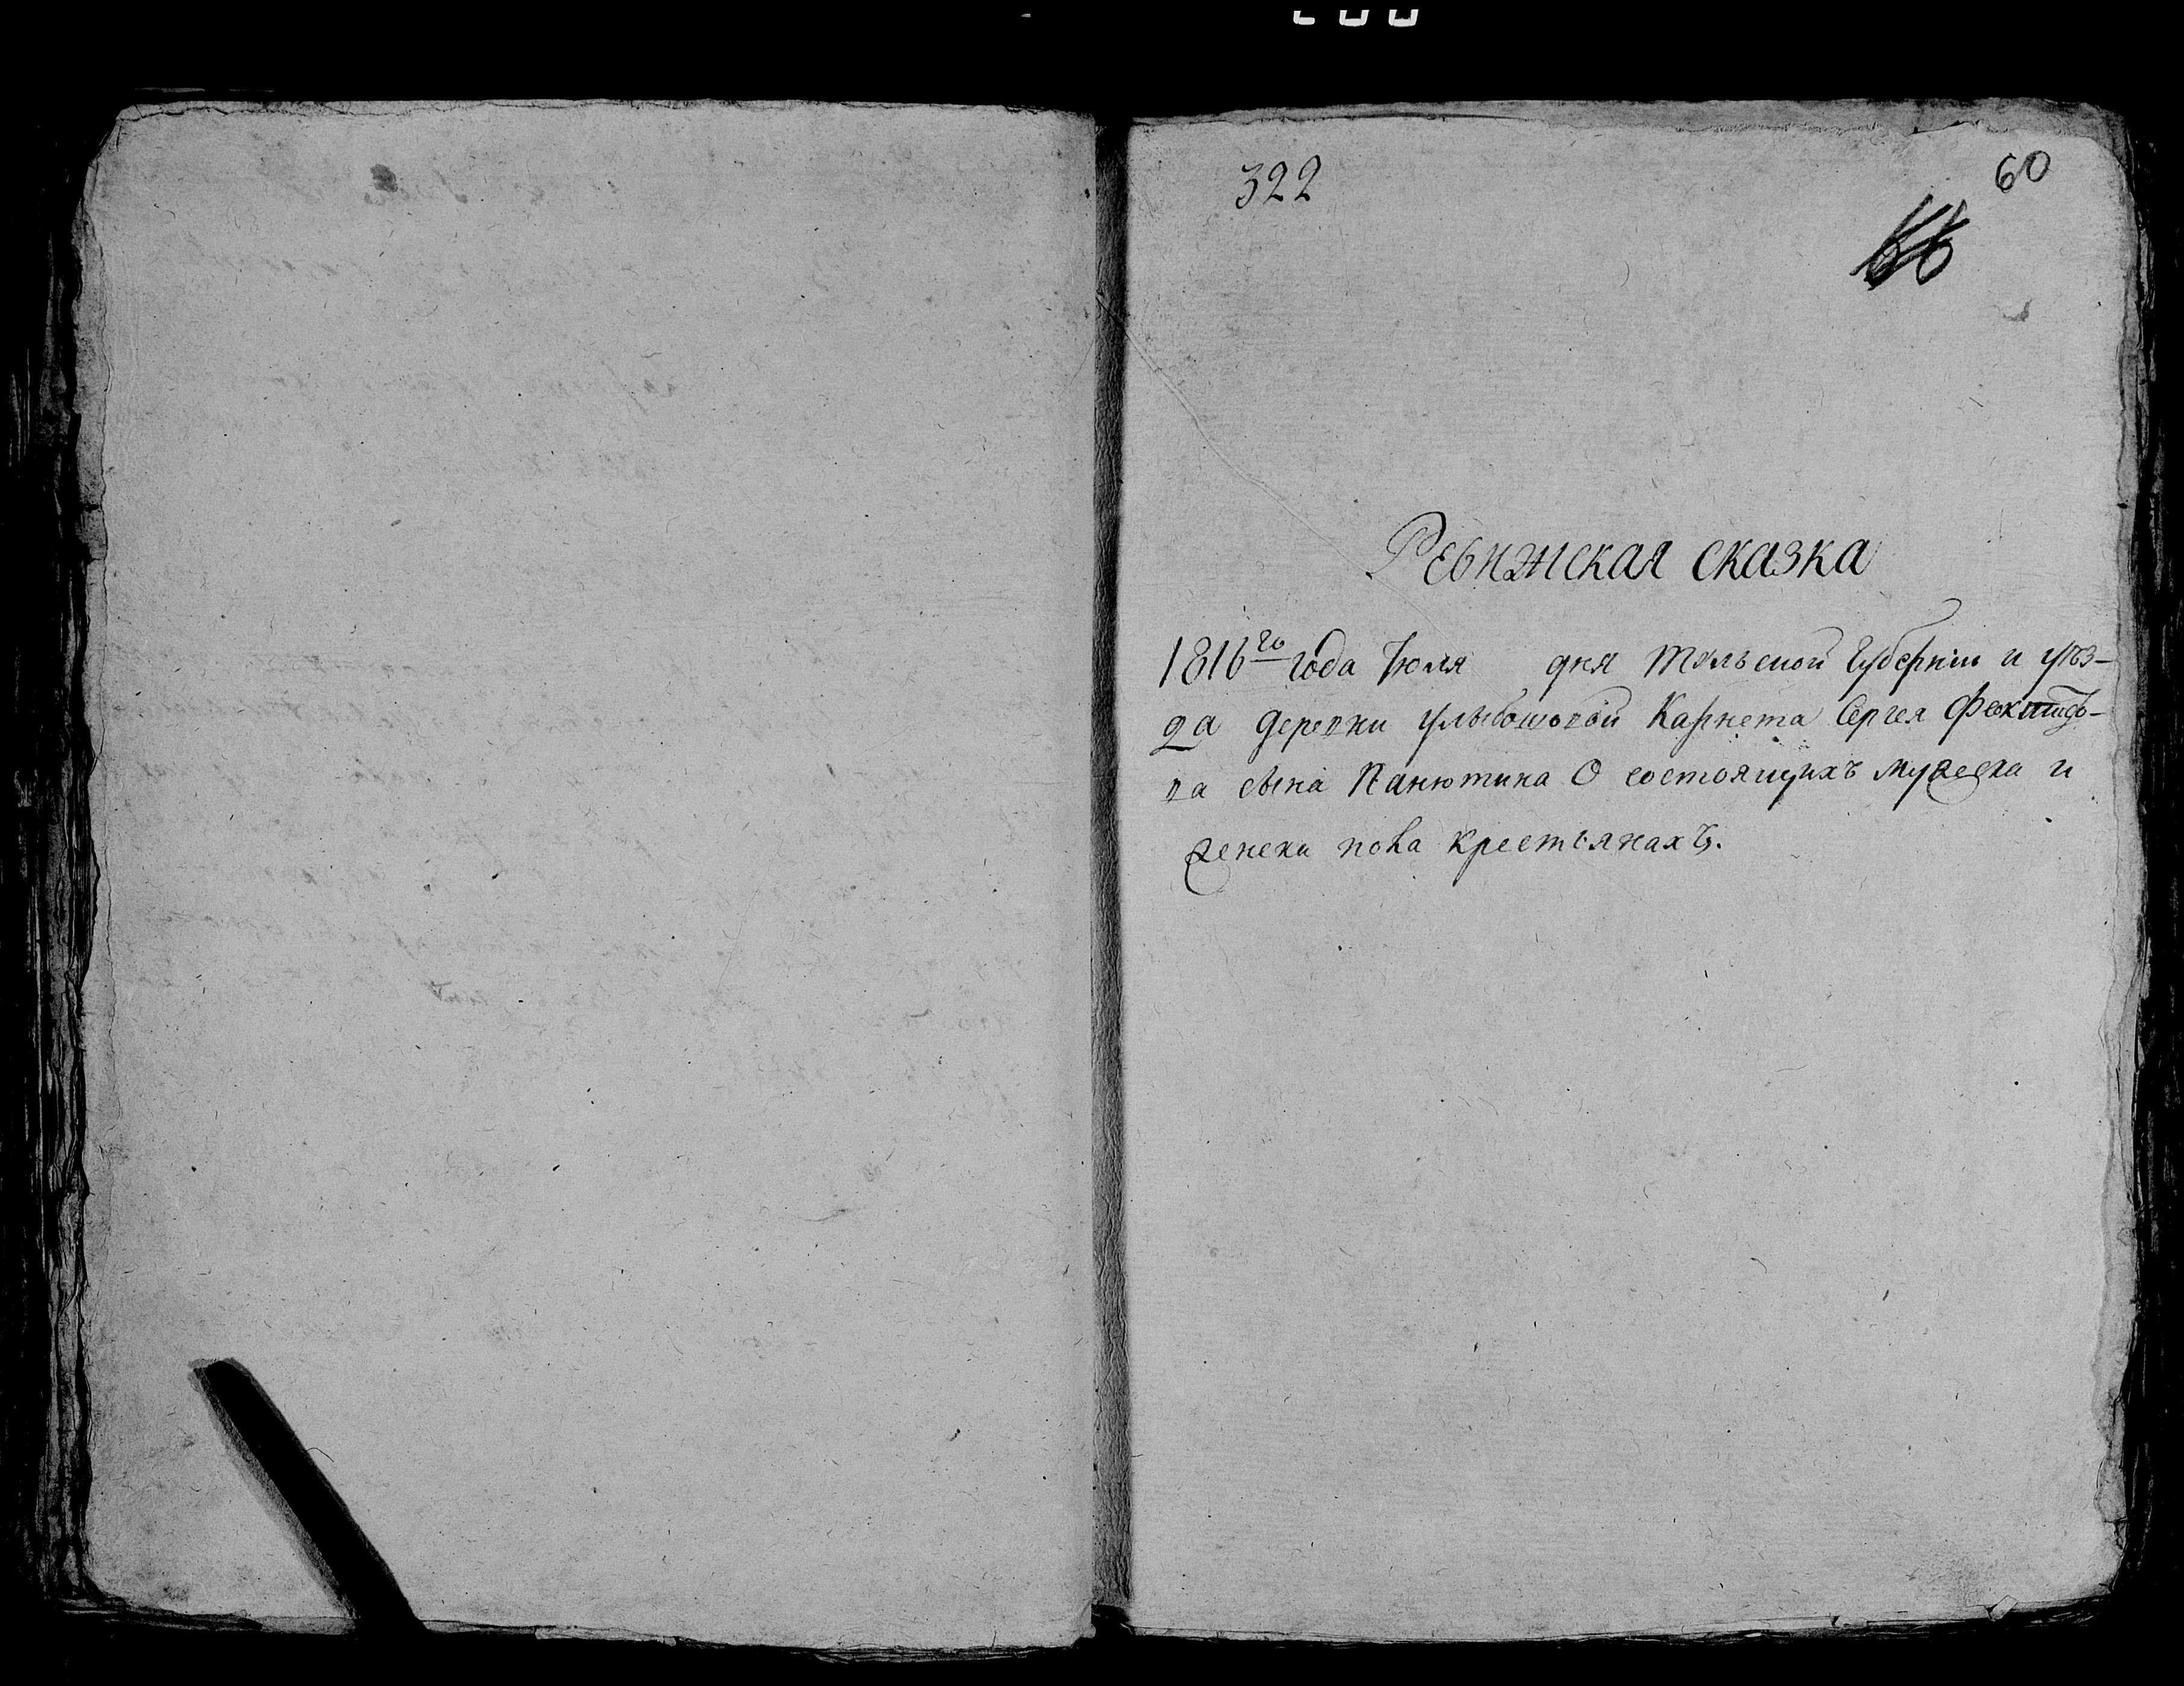 322
60
66
Ревижская сказка
1816го года Июля дня Тульской Губернии и уѣз-
да деревни Улыбошовой Карнета Сергея
ва сына Панютина О состоящихъ мужеска и
женска пола крестьянахъ.